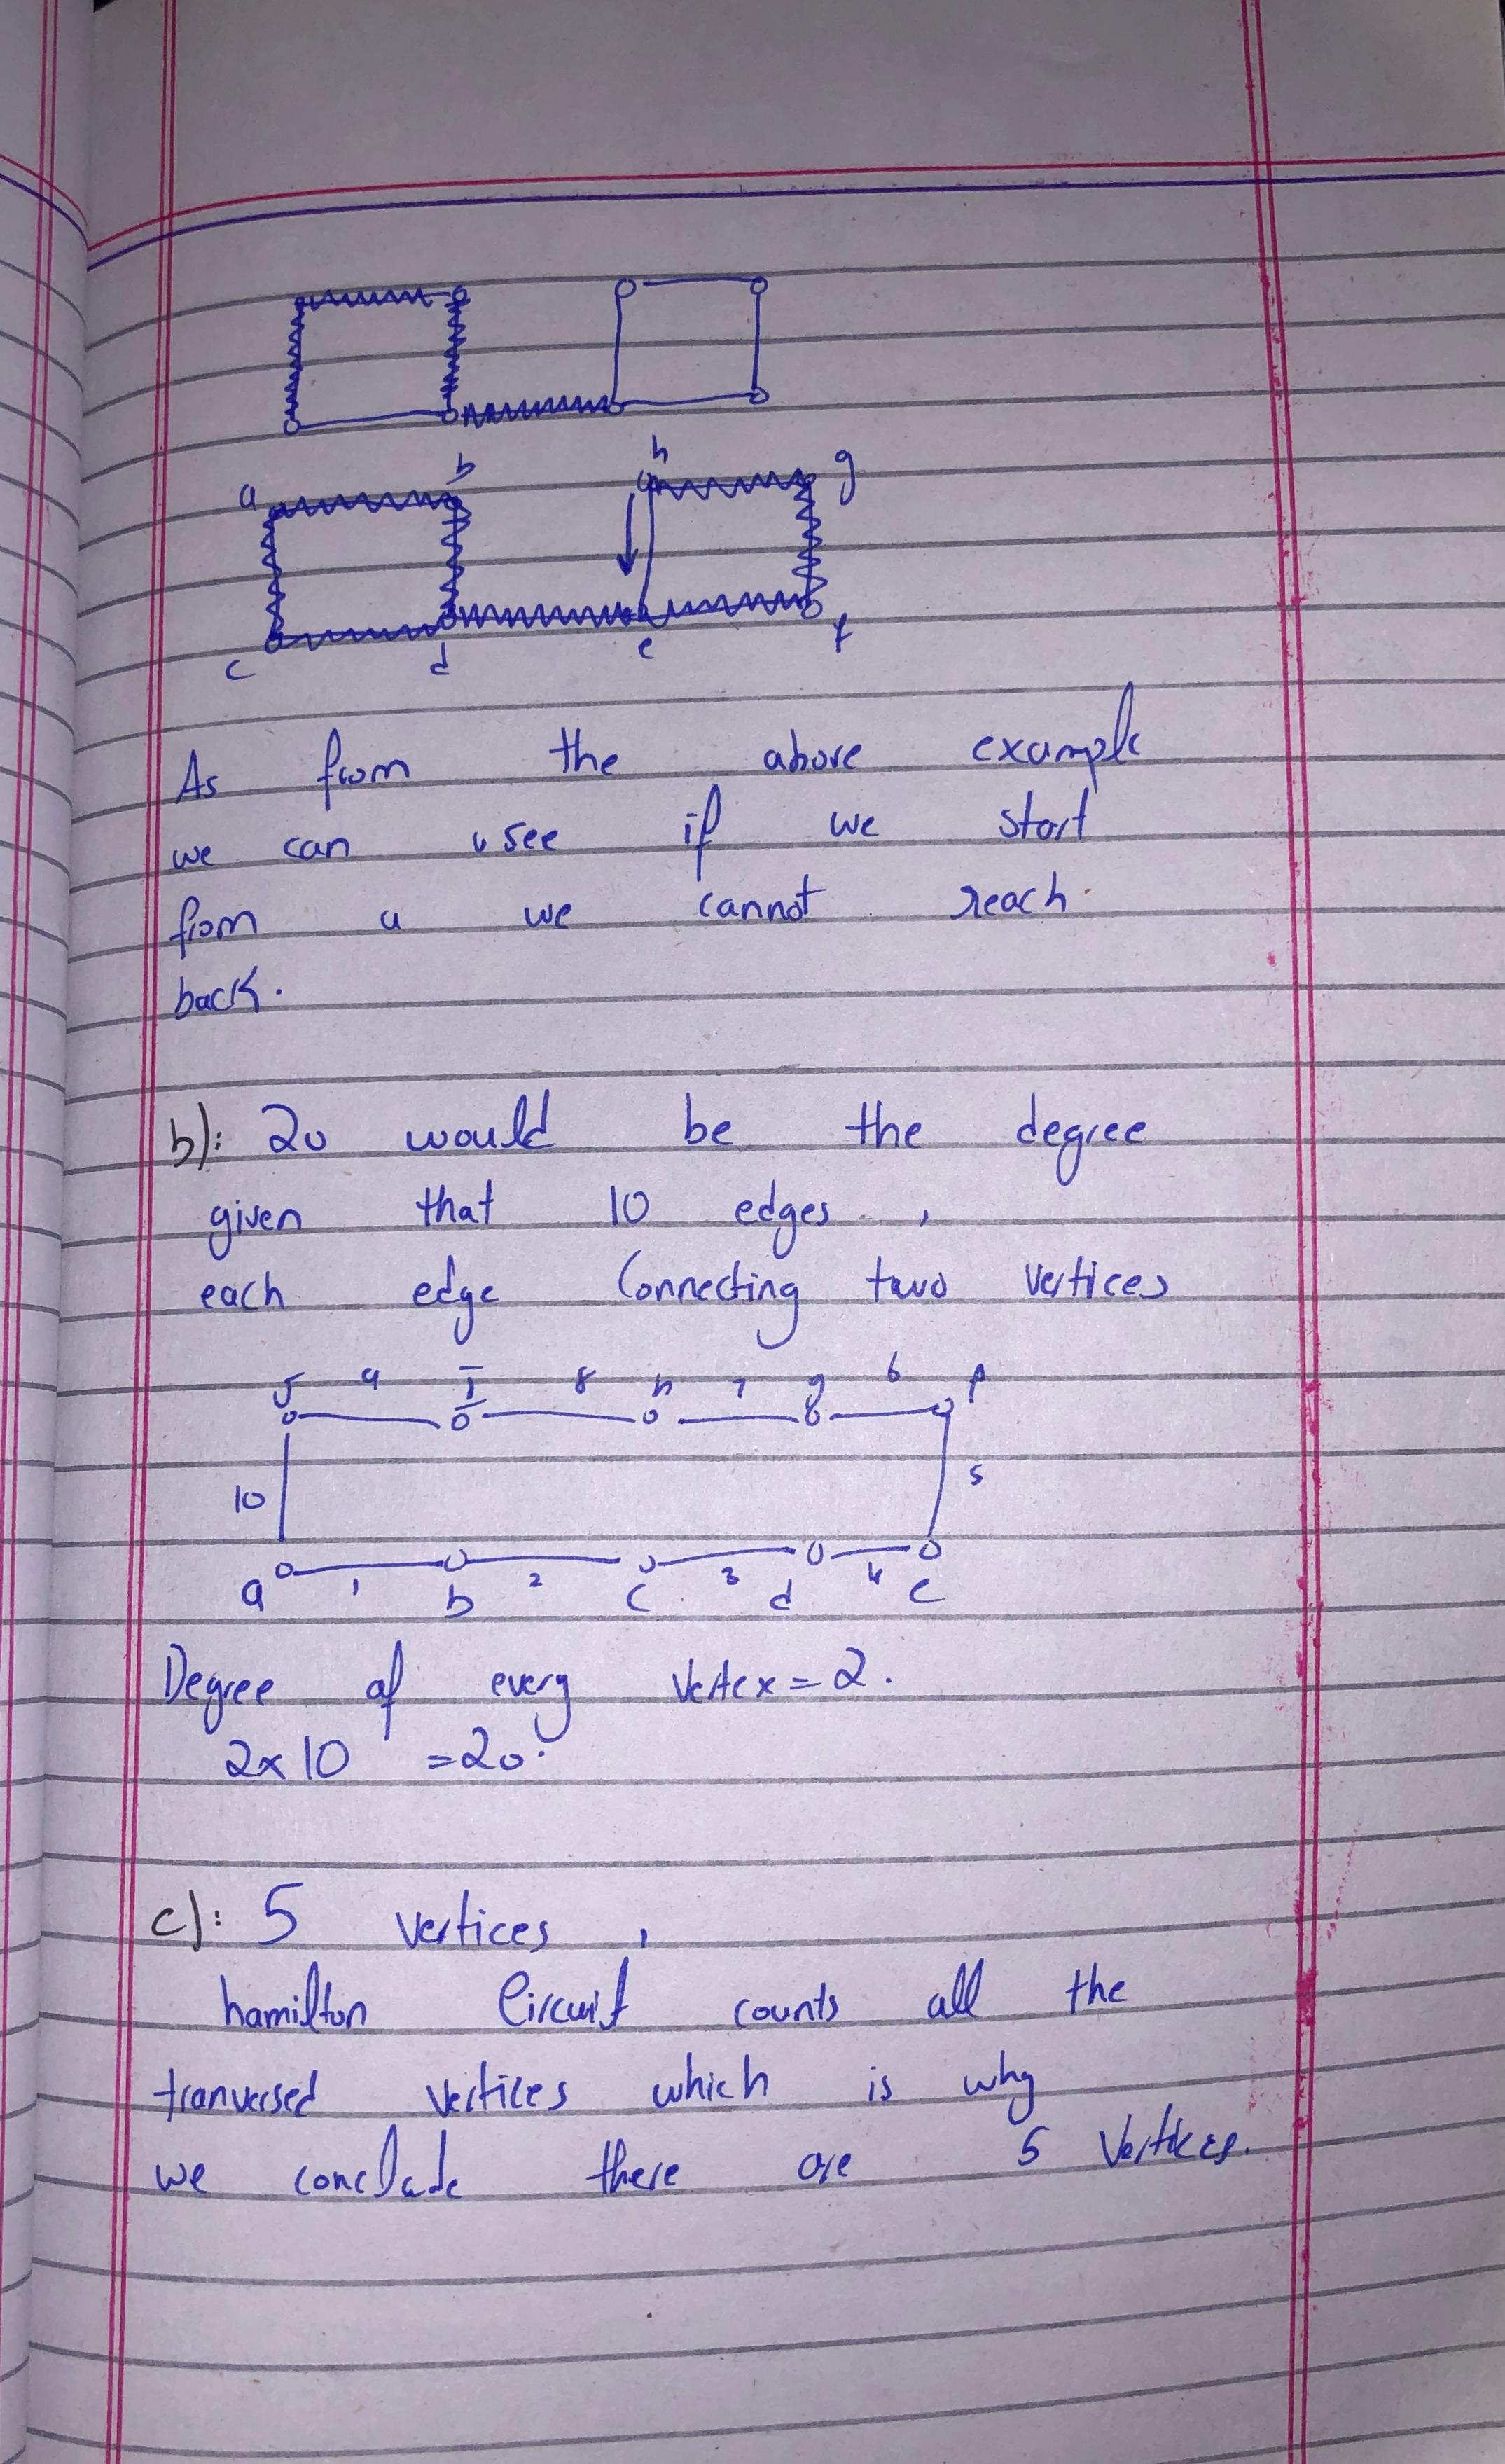 h
a b g
c d e f
As from the above example
we can see if we start
from a we cannot reach
back.
b): 20 would be the degree
given that 10 edges,
each edge Connecting two vertices
J 9 I 8 h 7 g 6 f
10 5
a 1 b 2 c 3 d 4 e
Degree of every vertex = 2.
2x10 = 20.
c): 5 vertices,
hamilton Circuit counts all the
tranversed vertices which is why
we conclude there are 5 vertices.